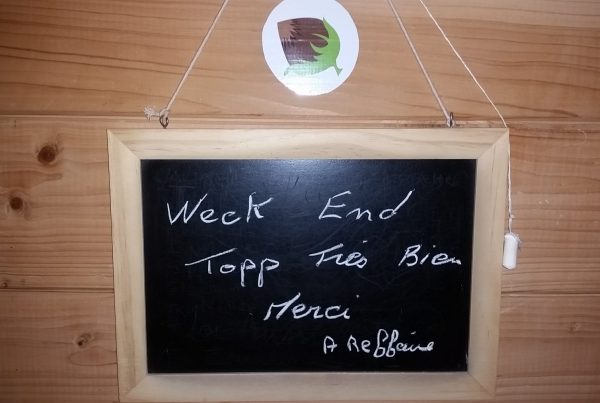 Week End
Topp Très Bien
Merci
A Reffaire